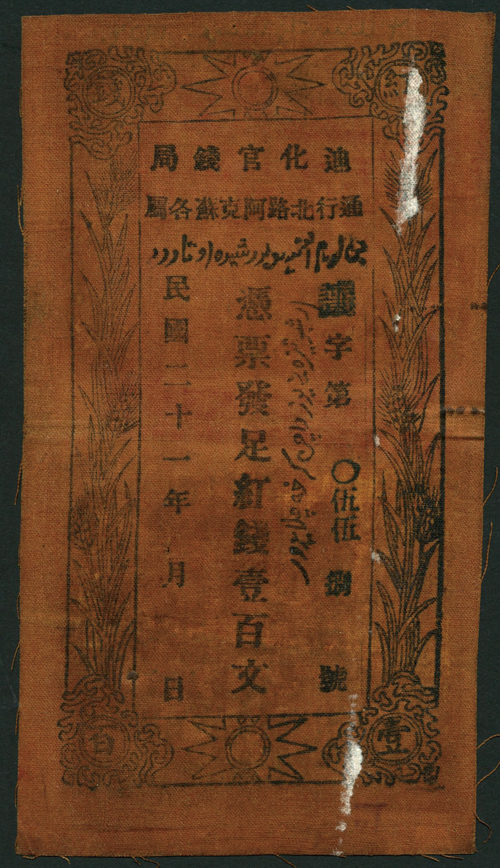 紅錢
迪化官錢局
通行北路阿克蘇各屬
字第〇伍伍捌號
憑票發足紅錢壹百文
民國二十一年 月 日
壹百